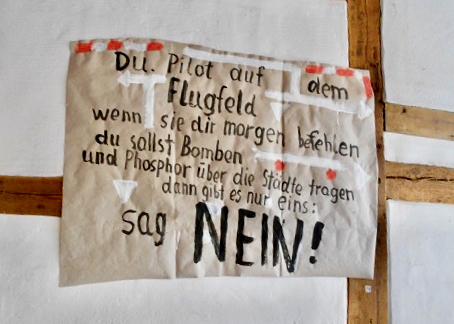 Du. Pilot auf dem
Flugfeld
wenn sie dir morgen befehlen
du sollst Bomben
und Phosphor über die Städte tragen
dann gibt es nur eins:
sag NEIN!